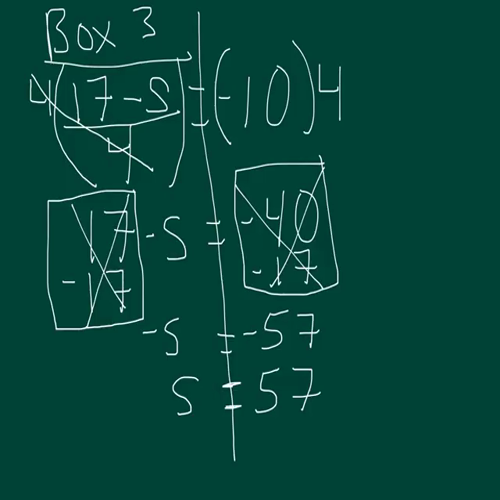 Box 3
4(17 - S / 4) = (-10)4
17 - S = -40
-17 -17
-S = -57
S = 57